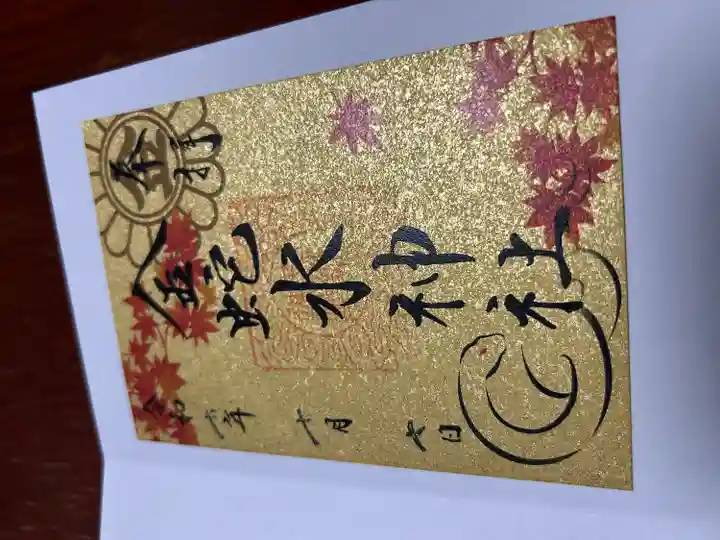 奉拝
金蛇水神社
令和六年 十月 七日